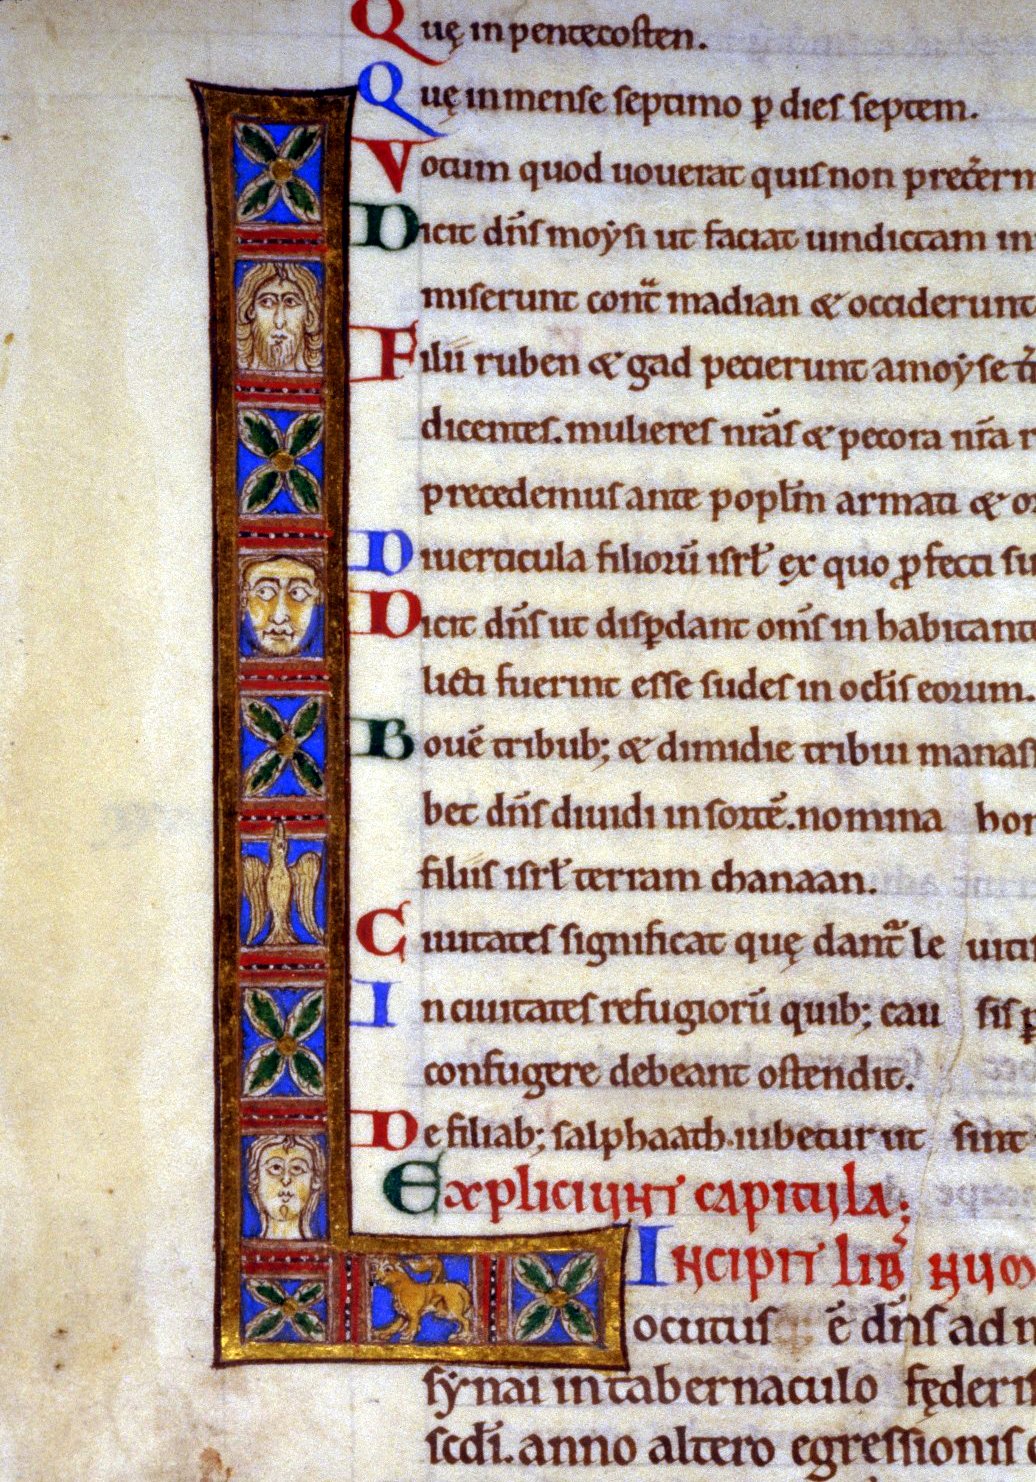 Quę in pentecosten.
Quę in mense septimo ꝑ dies septem.
Votum quod uouerat quis non
Dicit dn̄s moẏsi ut faciat uindictam
miserunt cont̄ madian & occiderunt
Filii ruben & gad petierunt a moẏse
dicentes. mulieres nr̄as & pecora nr̄a
precedemus ante popl̄m armati &
Diuerticula filiorū isrl̄ ex quo ꝓfecti
Dicit dn̄s ut disꝑdant om̄s in habitant
licti fuerint esse sudes in ocl̄is eorum.
Nouē tribub; & dimidie tribui
bet dn̄s diuidi in sortē. nomina
filiis isrl̄ terram chanaan.
Ciuitates significat quę dant̄ le uiti
In ciuitates refugiorū quib; cau sis
confugere debeant ostendit.
De filiab; salphaath iubetur ut sint
Expliciunt capitula;
Incipit lib̄ num
Locutus ē dn̄s ad
sẏnai in tabernaculo fęderis
scdi. anno altero egressionis